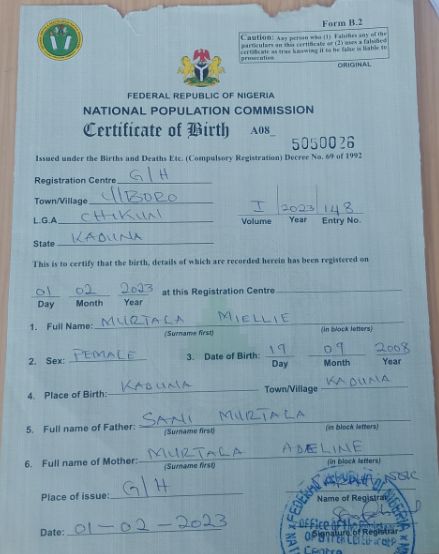 Form B.2
Caution: Any person who (1) Falsifies any of the
particulars on this certificate or (2) uses a falsified
certificate as true knowing it to be false is liable to
prosecution.
ORIGINAL
FEDERAL REPUBLIC OF NIGERIA
NATIONAL POPULATION COMMISSION
Certificate of Birth A08_ 5050026
Issued under the Births and Deaths Etc. (Compulsory Registration) Decree No. 69 of 1992
Registration Centre G/H
Town/Village
L.G.A CHIKUN I 2023 148
Volume Year Entry No.
State KADUNA
This is to certify that the birth, details of which are recorded herein has been registered on
01 02 2023 at this Registration Centre
Day Month Year
1. Full Name: MURTALA MIELLIE
(Surname first) (in block letters)
2. Sex: FEMALE 3. Date of Birth: 19 09 2008
Day Month Year
4. Place of Birth: KADUNA Town/Village KADUNA
5. Full name of Father: SANI MURTALA
(Surname first) (in block letters)
6. Full name of Mother: MURTALA ADELINE
(Surname first) (in block letters)
Place of issue: G/H
Name of Registrar
Date: 01-02-2023
Signature of Registrar